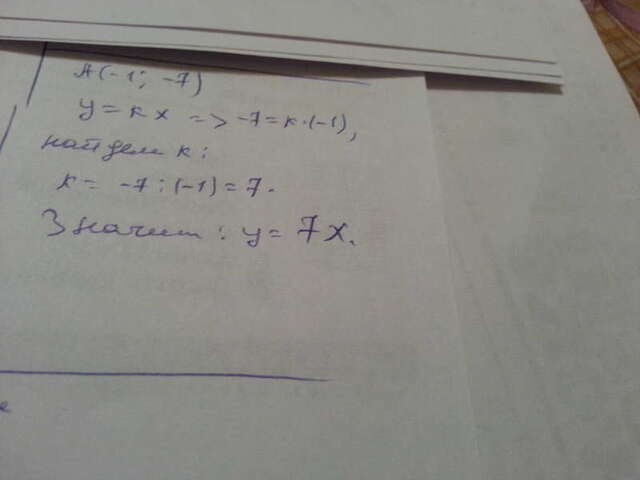 A(-1; -7)
y = kx => -7 = k·(-1),
найдем k:
k = -7 : (-1) = 7.
Значит: y = 7x.